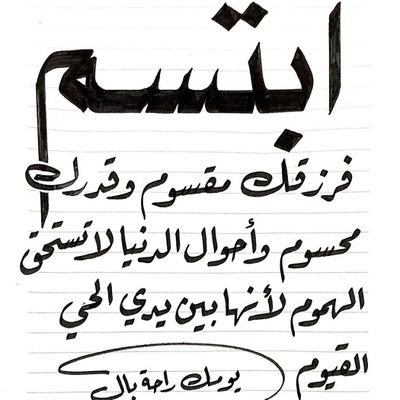 ابتسم
فرزقك مقسوم وقدرك
محسوم وأحوال الدنيا لا تستحق
الهموم لأنها بين يدي الحي
القيوم
يومك راحة بال